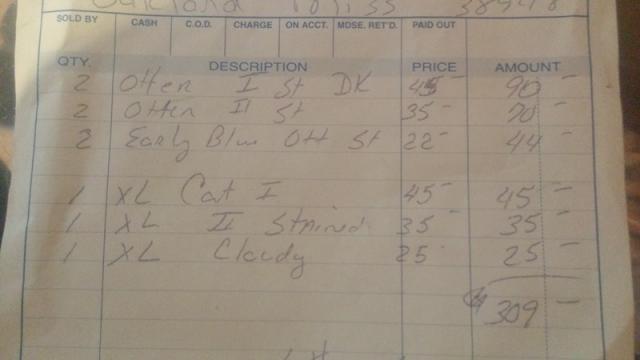 Oakland Miss 38948
SOLD BY CASH C.O.D. CHARGE ON ACCT. MDSE. RET'D. PAID OUT
QTY. DESCRIPTION PRICE AMOUNT
2 Otter I St DK 45- 90-
2 Otter II St 35- 70-
2 Early Blue Ott St 22- 44-
1 XL Cat I 45- 45-
1 XL II Stained 35- 35-
1 XL Cloudy 25 25-
$309-